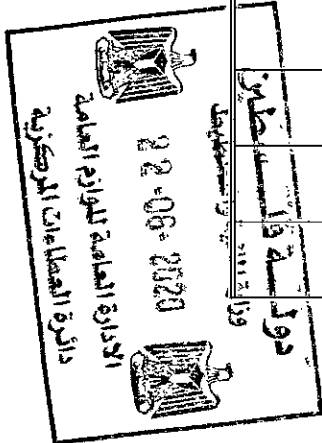 دولة فلسطين
وزارة
22-06-2020
الادارة العامة للوازم العامة
دائرة العطاءات المركزية